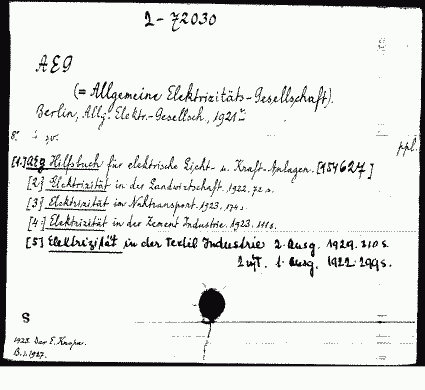 2-72030
AEG
(= Allgemeine Elektrizitäts-Gesellschaft).
Berlin, Allg. Elektr.-Gesellsch., 1921
8° 4 zv. ppl.
[1.] AEG Hilfsbuch für elektrische Licht- u. Kraft-Anlagen. [154627]
[2.] Elektrizität in der Landwirtschaft. 1922. 72 s.
[3.] Elektrizität im Nahtransport. 1923. 174 s.
[4.] Elektrizität in der Zement Industrie. 1923. 111 s.
[5] Elektrizität in der Textil Industrie 2. Ausg. 1929. 310 s.
1. Ausg. 1922. 299 s.
S
1925. Dar E.
B. 1. 1927.